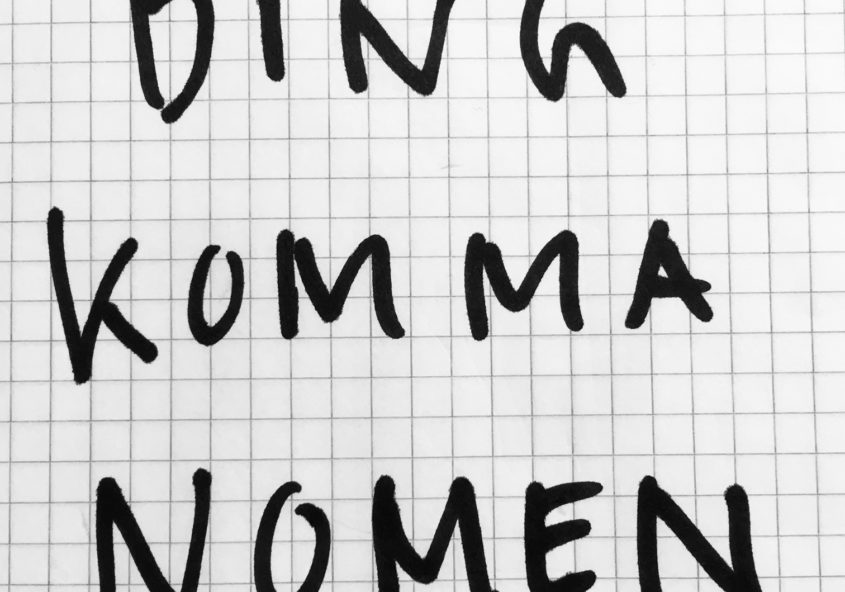 DING
KOMMA
NOMEN